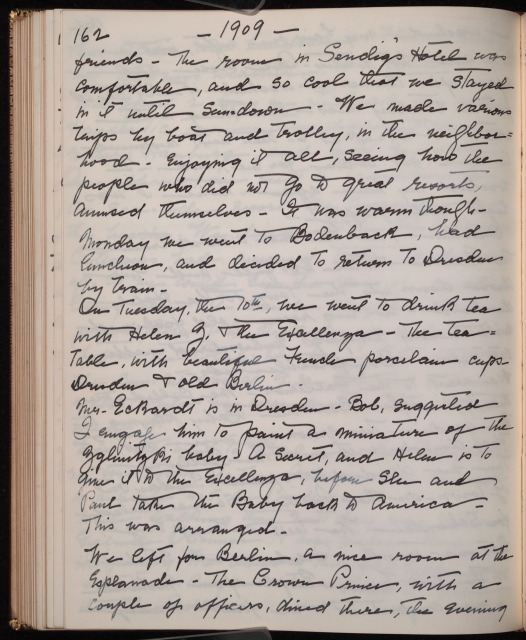 162 — 1909 —
friends - The room in Sendig's Hotel was
comfortable, and so cool that we stayed
in it until Sun-down - We made various
trips by boat and trolley, in the neighbor=
hood - Enjoying it all, seeing how the
people who did not go to great resorts,
amused themselves - It was warm though -
Monday we went to Bodenback, had
luncheon, and decided to return to Dresden
by train -
On Tuesday, the 10th, we went to drink tea
with Helen Z. & the Excellenza - The tea=
table, with beautiful French porcelain cups
Dresden & old Berlin -
Mr. Eckhardt is in Dresden - Bob, suggested
I engage him to paint a miniature of the
baby - A secret, and Helen is to
give it to the Excellenza, before She and
Paul take the Baby back to America -
This was arranged -
We left for Berlin, a nice room at the
Esplanade - The Crown Prince, with a
couple of officers, dined there, the evening